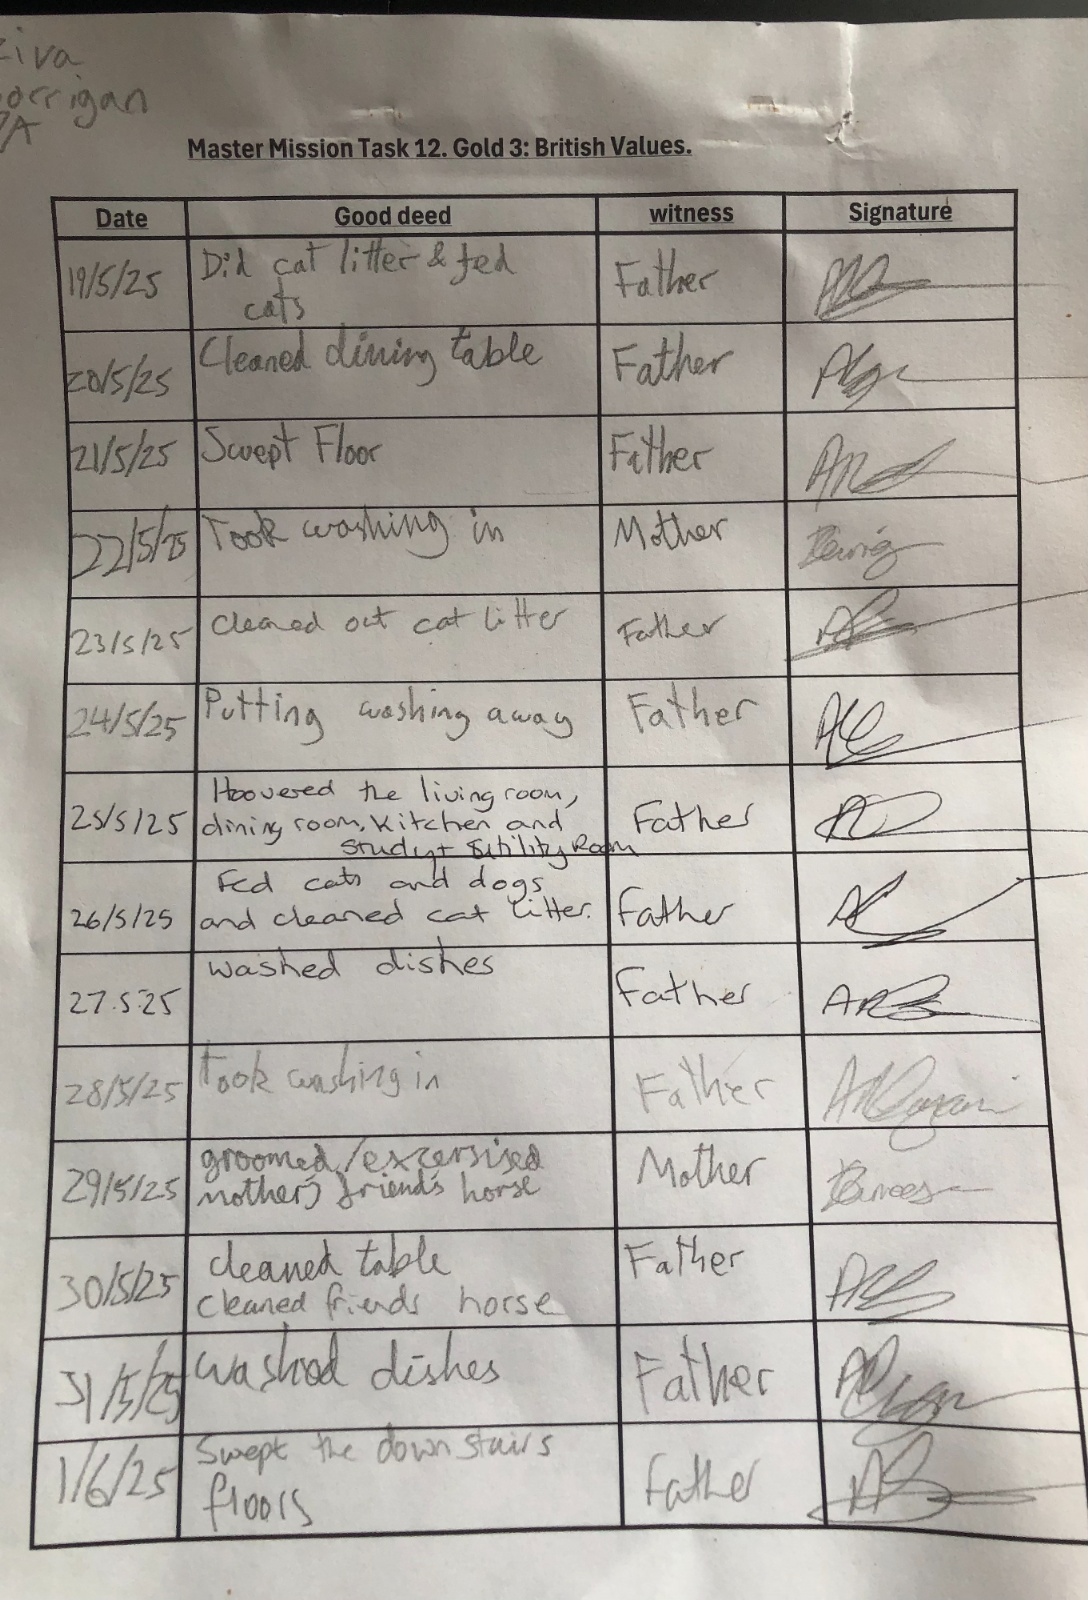 ziva
orrigan
7A
Master Mission Task 12. Gold 3: British Values.
Date Good deed witness Signature
19/5/25 Did cat litter & fed Father
cats
20/5/25 Cleaned dining table Father
21/5/25 Swept Floor Father
22/5/25 Took washing in Mother
23/5/25 cleaned out cat litter Father
24/5/25 Putting washing away Father
25/5/25 Hoovered the living room, Father
dining room, kitchen and
study + utility Room
26/5/25 Fed cats and dogs Father
and cleaned cat litter.
27.5.25 washed dishes Father
28/5/25 took washing in Father
29/5/25 groomed/excersised Mother
mothers friends horse
30/5/25 cleaned table Father
cleaned friends horse
31/5/25 washed dishes Father
1/6/25 Swept the down stairs Father
floors